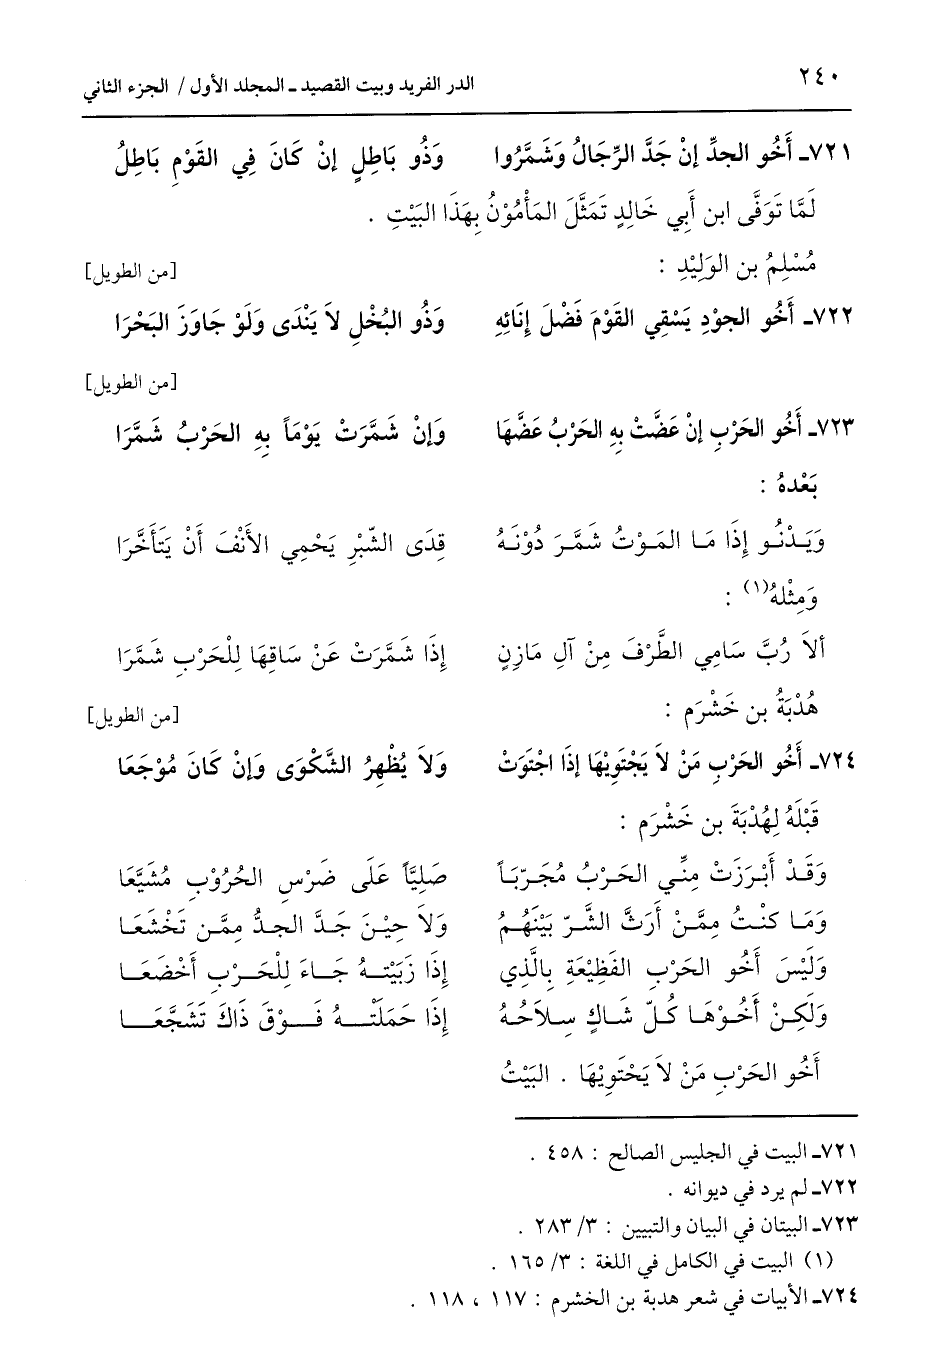 ٢٤٠ الدر الفريد وبيت القصيد ـ المجلد الأول / الجزء الثاني
٧٢١ـ أَخُو الجدِّ إنْ جَدَّ الرِّجَالُ وَشَمَّرُوا وَذُو بَاطِلٍ إنْ كَانَ فِي القَوْمِ بَاطِلُ
لَمَّا تَوَفَّى ابن أَبِي خَالِدٍ تَمَثَّلَ المَأْمُوْنُ بِهَذَا البَيْتِ .
مُسْلِمُ بن الوَلِيْدِ : [من الطويل]
٧٢٢ـ أَخُو الجوْدِ يَسْقِي القَوْمَ فَضْلَ إنَائِهِ وَذُو البُخْلِ لاَ يَنْدَى وَلَوْ جَاوَزَ البَحْرَا
[من الطويل]
٧٢٣ـ أَخُو الحَرْبِ إنْ عَضَّتْ بِهِ الحَرْبُ عَضَّهَا وَإنْ شَمَّرَتْ يَوْمَاً بِهِ الحَرْبُ شَمَّرَا
بَعْدهُ :
وَيَدْنُو إذَا مَا المَوْتُ شَمَّرَ دُوْنَهُ قِدَى الشّبْرِ يَحْمِي الأنْفَ أَنْ يَتَأَخَّرَا
وَمِثْلهُ(١) :
ألاَ رُبَّ سَامِي الطَّرْفَ مِنْ آلِ مَازِنٍ إذَا شَمَّرَتْ عَنْ سَاقِهَا لِلْحَرْبِ شَمَّرَا
هُدْبَةُ بن خَشْرَم : [من الطويل]
٧٢٤ـ أَخُو الحَرْبِ مَنْ لاَ يَجْتَوِيْهَا إذَا اجْتَوَتْ وَلاَ يُظْهِرُ الشَّكْوَى وَإنْ كَانَ مُوْجَعَا
قَبْلَهُ لِهُدْبَةَ بن خَشْرَم :
وَقَدْ أَبْرَزَتْ مِنِّي الحَرْبُ مُجَرّبَاً صَلِيَّاً عَلَى ضَرْسِ الحُرُوْبِ مُشَيَّعَا
وَمَا كنْتُ مِمَّنْ أَرَثَّ الشَّرّ بَيْنَهُمُ وَلاَ حِيْنَ جَدَّ الجدُّ مِمَّن تَخْشَعَا
وَلَيْسَ أَخُو الحَرْبِ الفَظِيْعَةِ بِالَّذِي إذَا زَبَيْتهُ جَاءَ لِلْحَرْبِ أَخْضَعَا
وَلَكِنْ أَخُوْهَا كُلّ شَاكٍ سِلاَحُهُ إذَا حَمَلَتْهُ فَوْقَ ذَاكَ تَشَجَّعَا
أَخُو الحَرْبِ مَنْ لاَ يَحْتَوِيْهَا . البَيْتُ
٧٢١ـ البيت في الجليس الصالح : ٤٥٨ .
٧٢٢ـ لم يرد في ديوانه .
٧٢٣ـ البيتان في البيان والتبيين : ٣/ ٢٨٣ .
(١) البيت في الكامل في اللغة : ٣/ ١٦٥ .
٧٢٤ـ الأبيات في شعر هدبة بن الخشرم : ١١٧ ، ١١٨ .